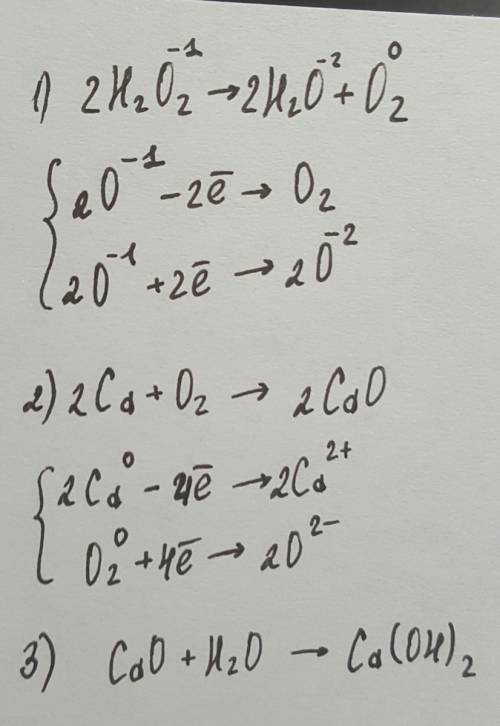 1) 2H₂O₂⁻¹ → 2H₂O⁻² + O₂⁰
2O⁻¹ - 2ē → O₂
2O⁻¹ + 2ē → 2O⁻²
2) 2Ca + O₂ → 2CaO
2Ca⁰ - 4ē → 2Ca²⁺
O₂⁰ + 4ē → 2O²⁻
3) CaO + H₂O → Ca(OH)₂